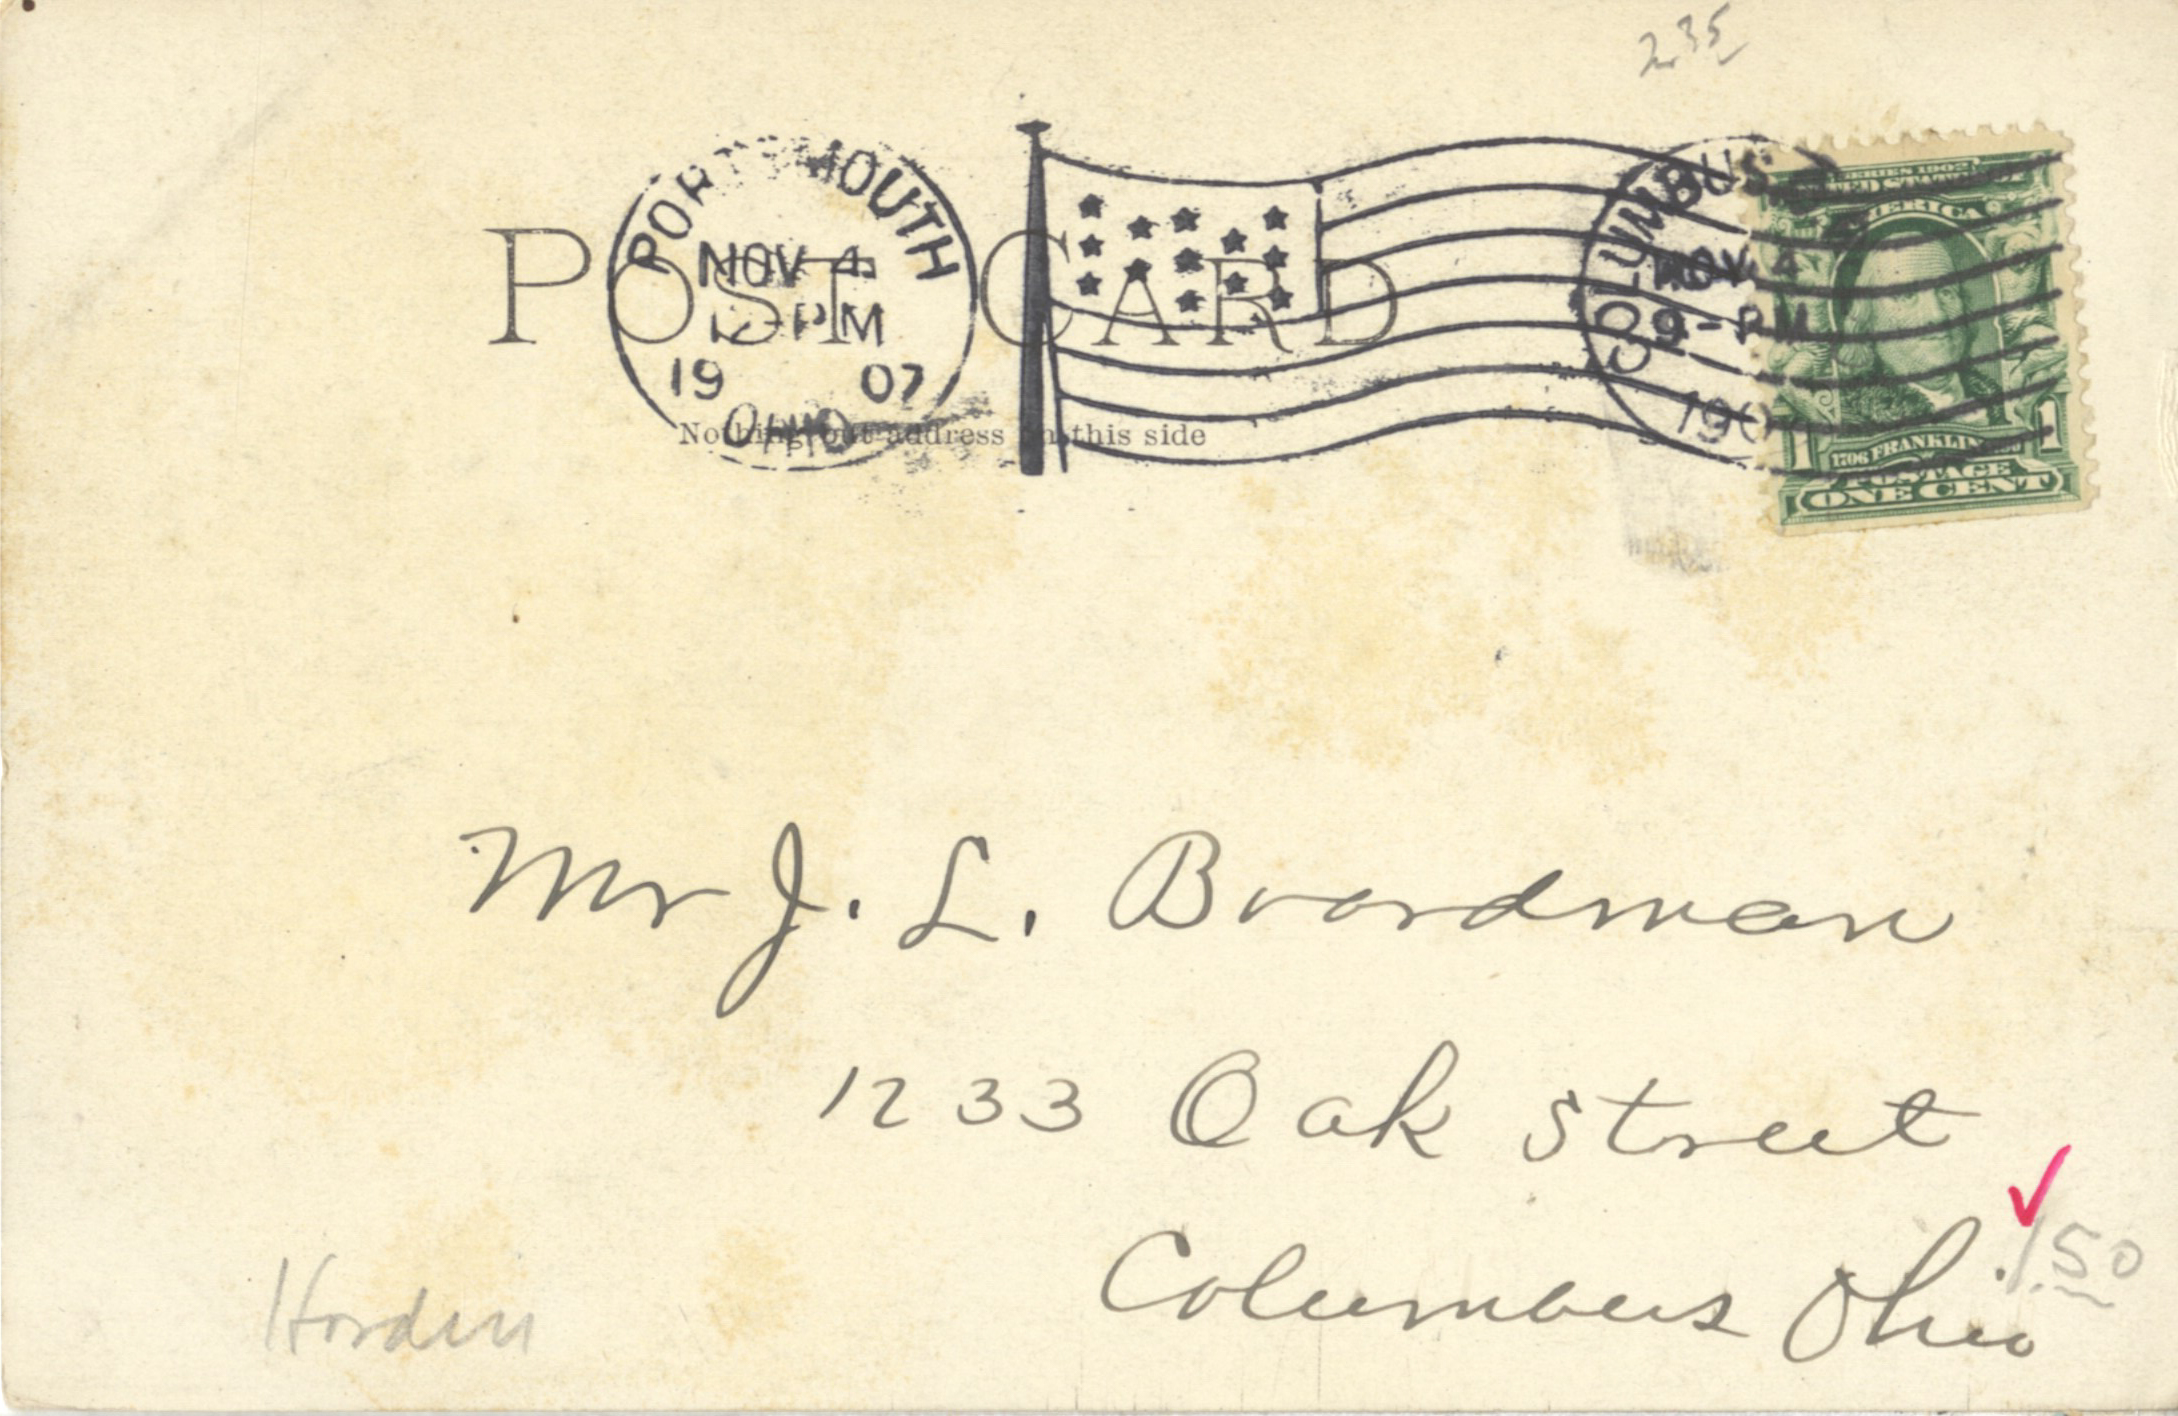 235
PORTSMOUTH
NOV 4
PM
19 07
OHIO
POST CARD
Nothing but address on this side
COLUMBUS
NOV 4
9-PM
190
SERIES 1902
UNITED STATES OF
AMERICA
1 1
1706 FRANKLIN 1790
POSTAGE
ONE CENT
Mr J. L. Boardman
1233 Oak Street
Columbus Ohio
1.50